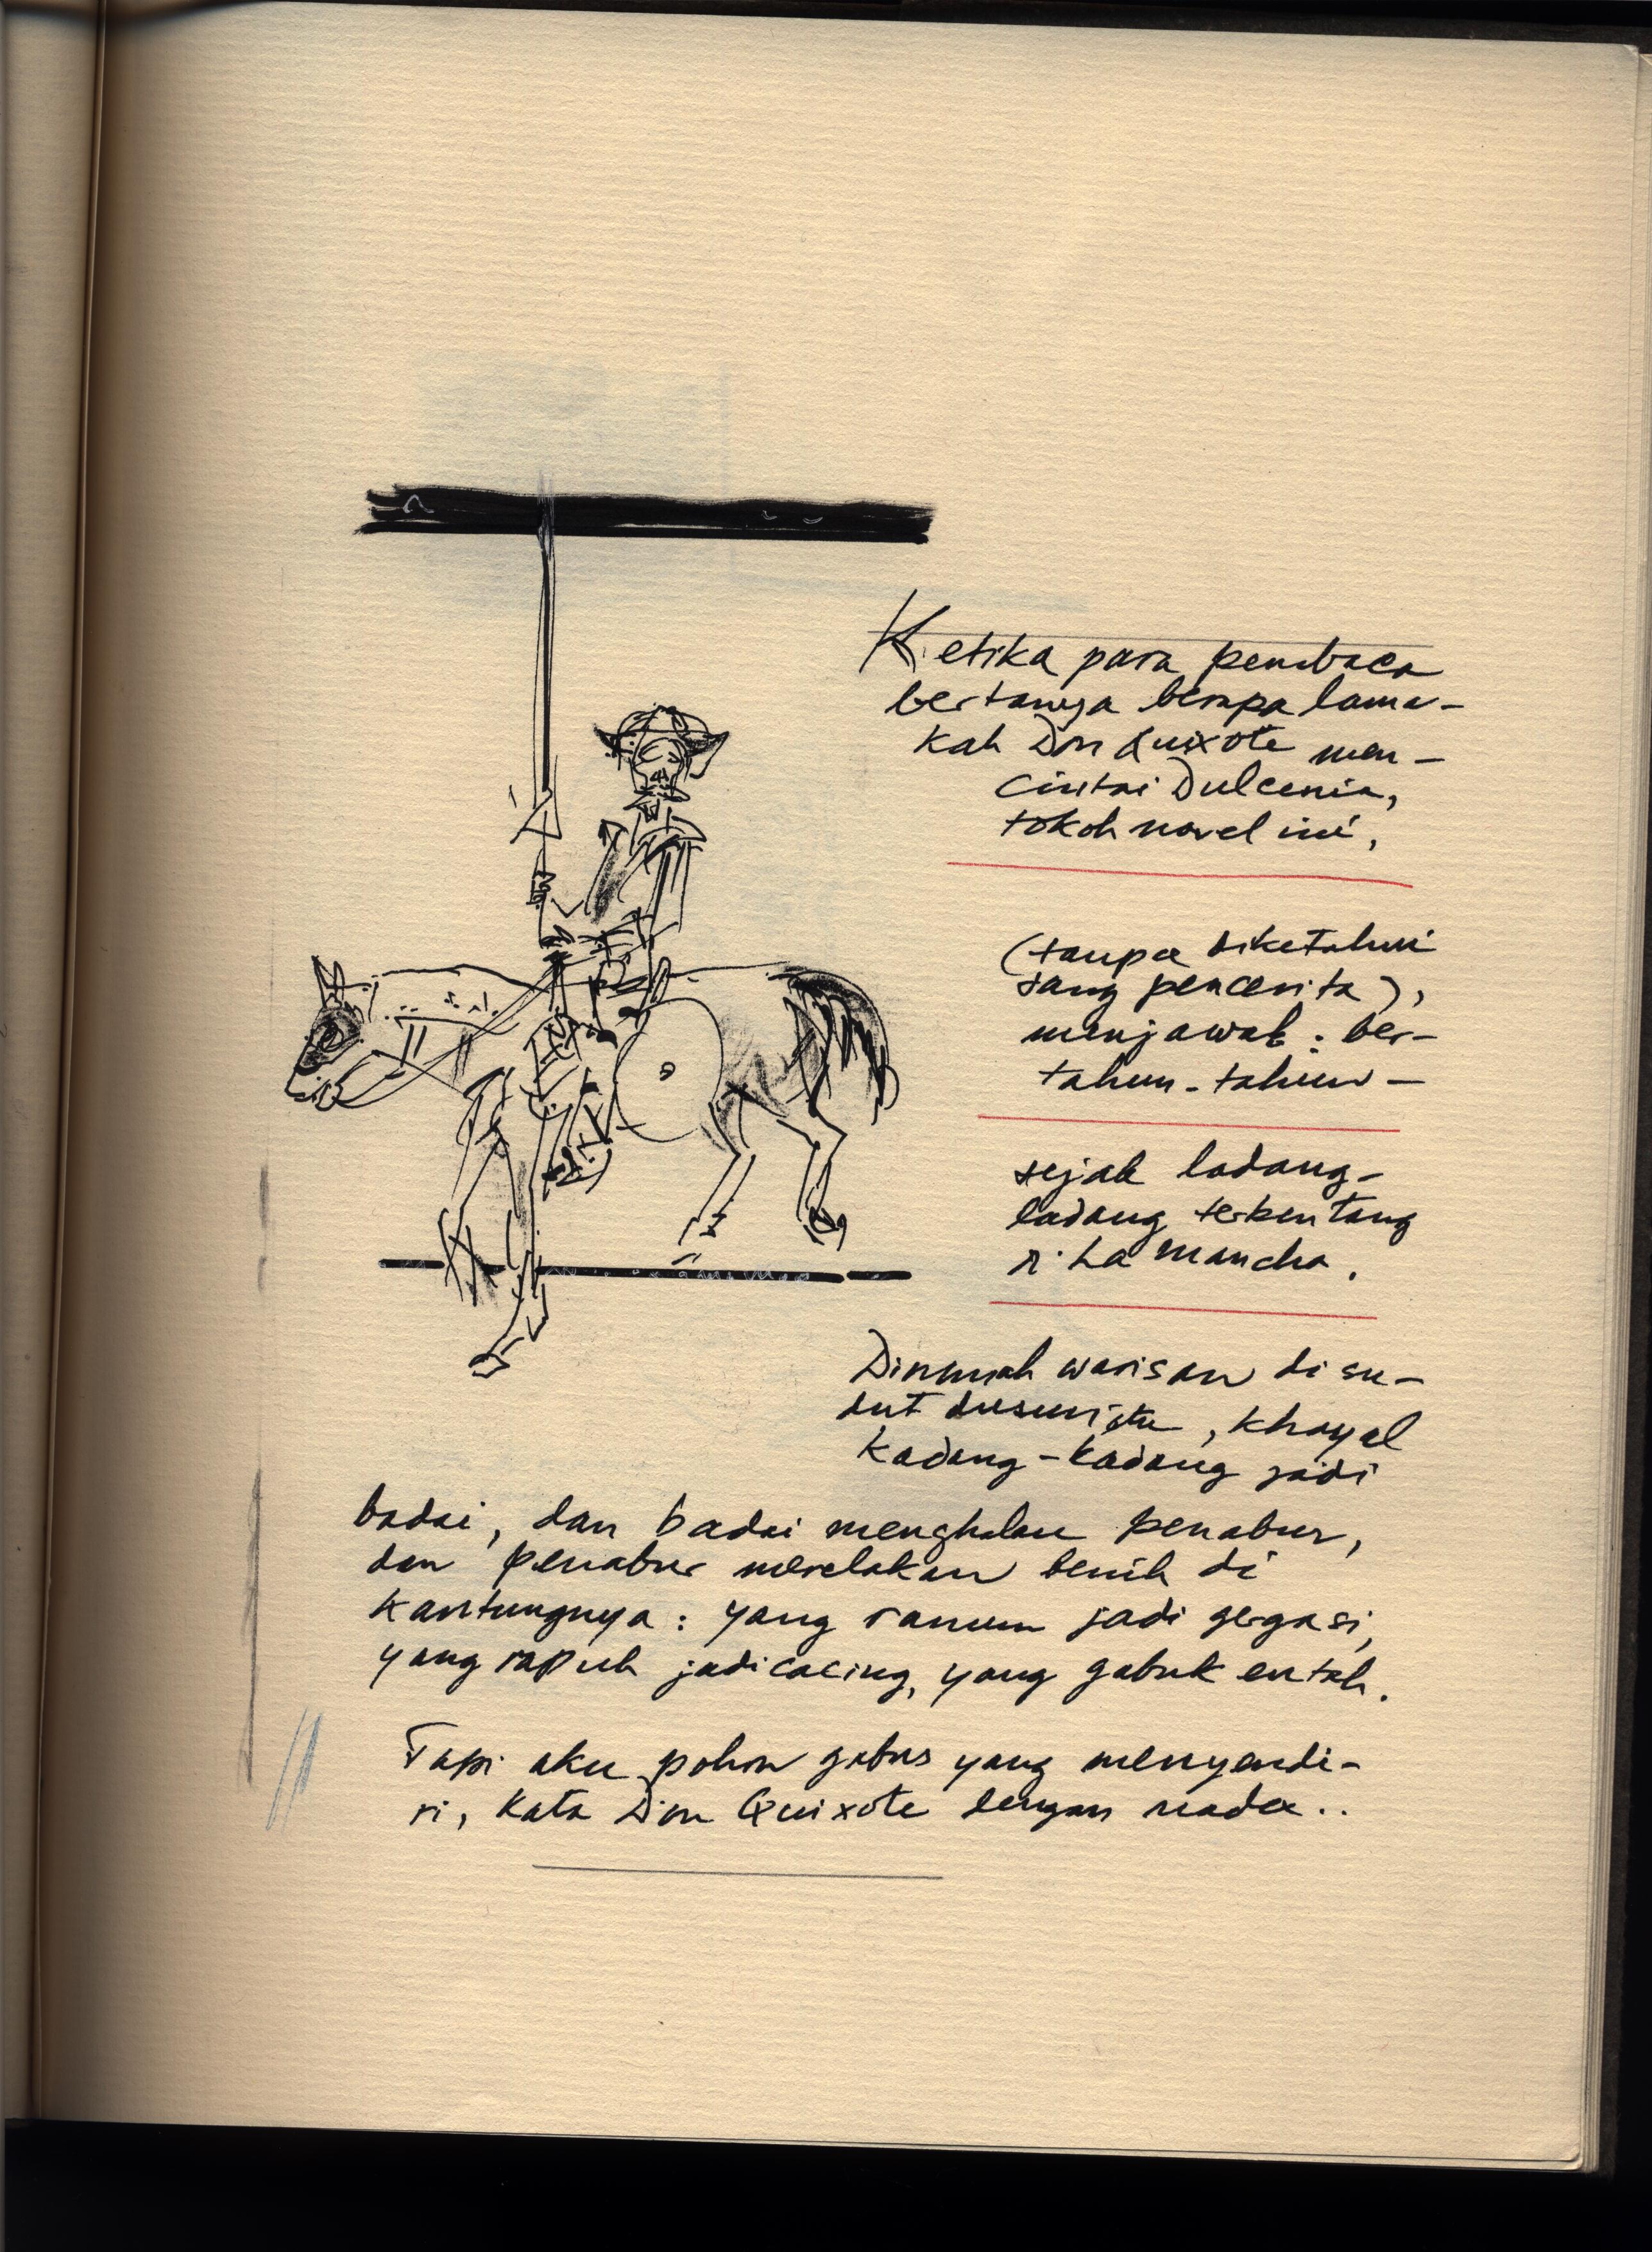 Ketika para pembaca
bertanya berapa lama-
kah Don Quixote men-
cintai Dulcenia,
tokoh novel ini,
(tanpa diketahui
sang pencerita),
menjawab: ber-
tahun-tahun-
sejak ladang-
ladang terbentang
di La Mancha.
Dirumah warisan di su-
dut dusun itu, khayal
kadang-kadang jadi
badai, dan badai menghalau penabur,
dan penabur merelakan benih di
kantungnya: yang ranum jadi gergasi,
yang rapuh jadi cacing, yang gabuk entah.
Tapi aku pohon gabus yang menyendi-
ri, kata Don Quixote dengan nada..